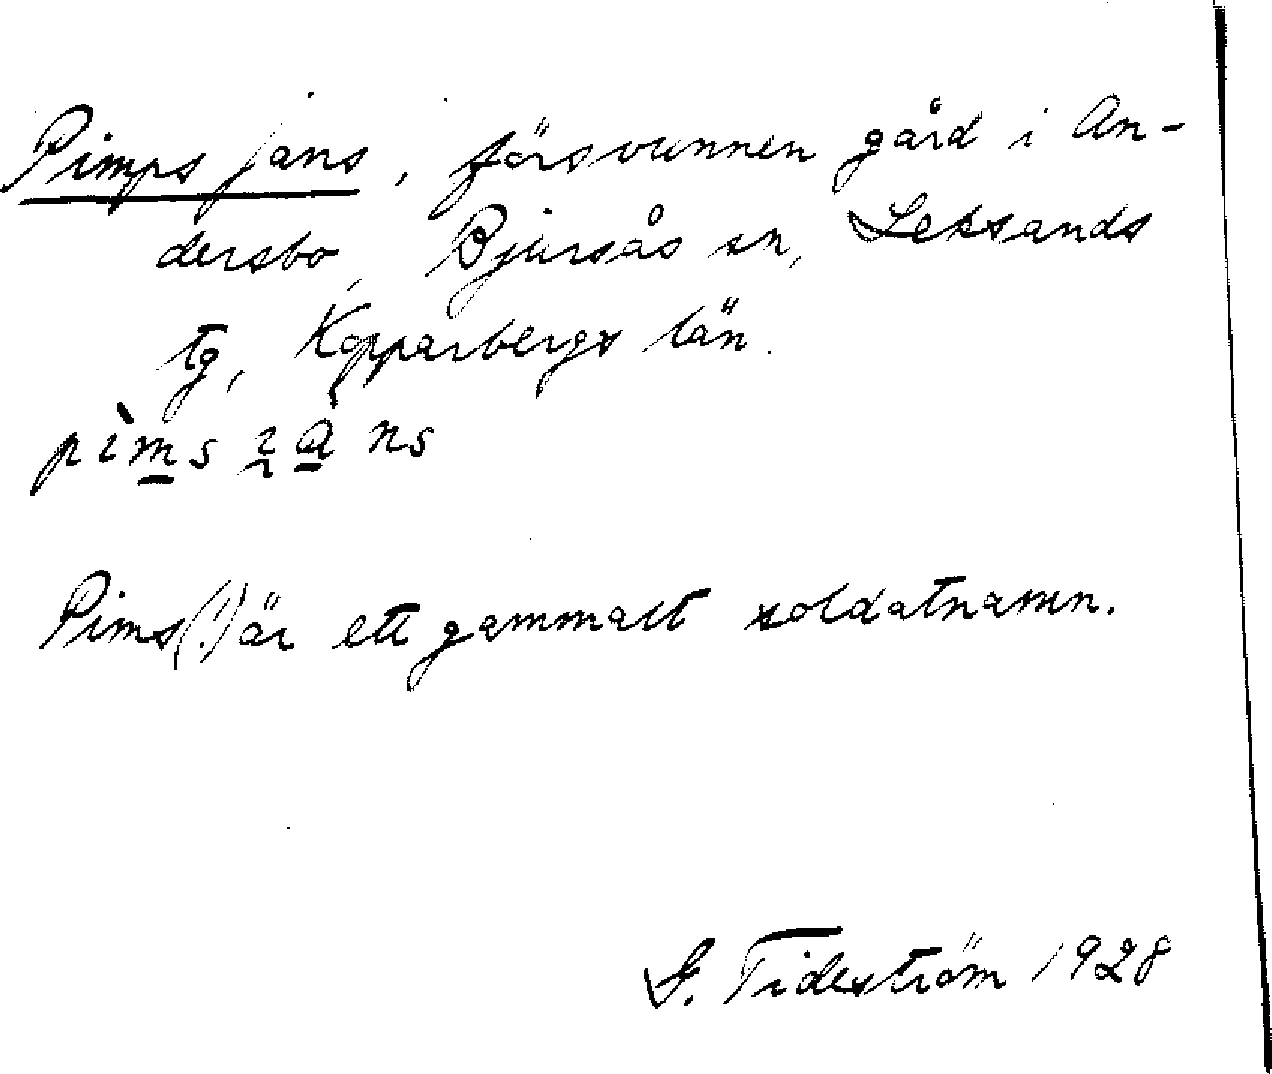 Pimps jans, försvunnen gård i An-
dersbo, Bjursås sn, Leksands
tg, Kopparbergs län.
pìms ns
Pims(!) är ett gammalt soldatnamn.
G. Tideström 1928